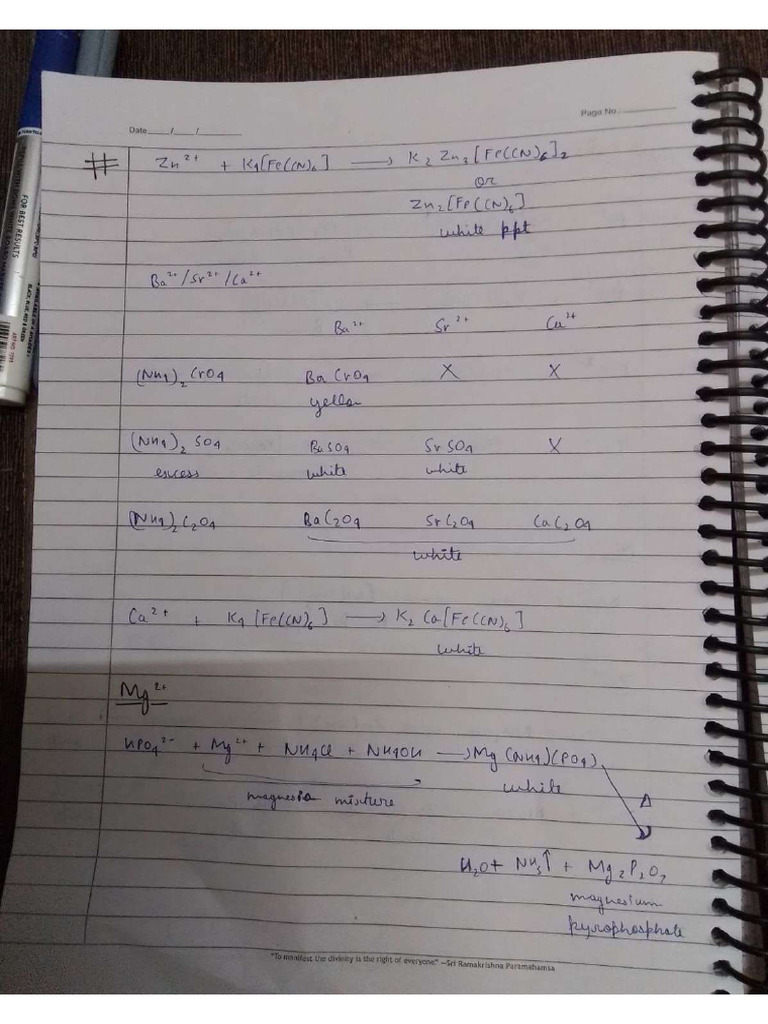 Page No.
Date / /
# Zn²⁺ + K₄[Fe(CN)₆] ⟶ K₂ Zn₃ [Fe(CN)₆]₂
or
Zn₂[Fe(CN)₆]
white ppt
Ba²⁺/Sr²⁺/Ca²⁺
Ba²⁺ Sr²⁺ Ca²⁺
(NH₄)₂ CrO₄ BaCrO₄ X X
yellow
(NH₄)₂ SO₄ BaSO₄ SrSO₄ X
excess white white
(NH₄)₂C₂O₄ BaC₂O₄ SrC₂O₄ CaC₂O₄
white
Ca²⁺ + K₄ [Fe(CN)₆] ⟶ K₂ Ca[Fe(CN)₆]
white
Mg²⁺
HPO₄²⁻ + Mg²⁺ + NH₄Cl + NH₄OH ⟶ Mg (NH₄)(PO₄)
magnesia mixture white Δ
H₂O + NH₃↑ + Mg₂P₂O₇
magnesium
pyrophosphate
"To manifest the divinity is the right of everyone." —Sri Ramakrishna Paramahamsa
FOR BEST RESULTS